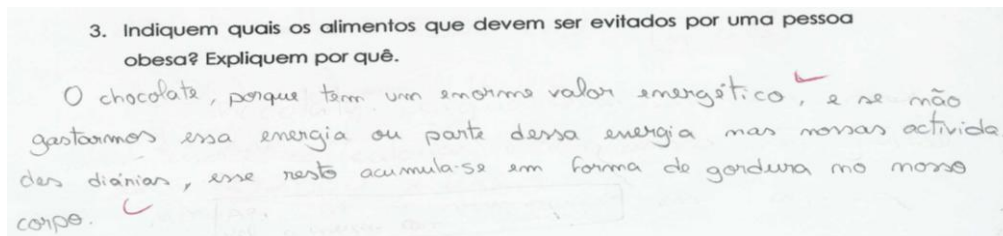 3. Indiquem quais os alimentos que devem ser evitados por uma pessoa
obesa? Expliquem por quê.
O chocolate, porque tem um enorme valor energético, e se não
gastarmos essa energia ou parte dessa energia nas nossas activida
des diárias, esse resto acumula-se em forma de gordura no nosso
corpo.